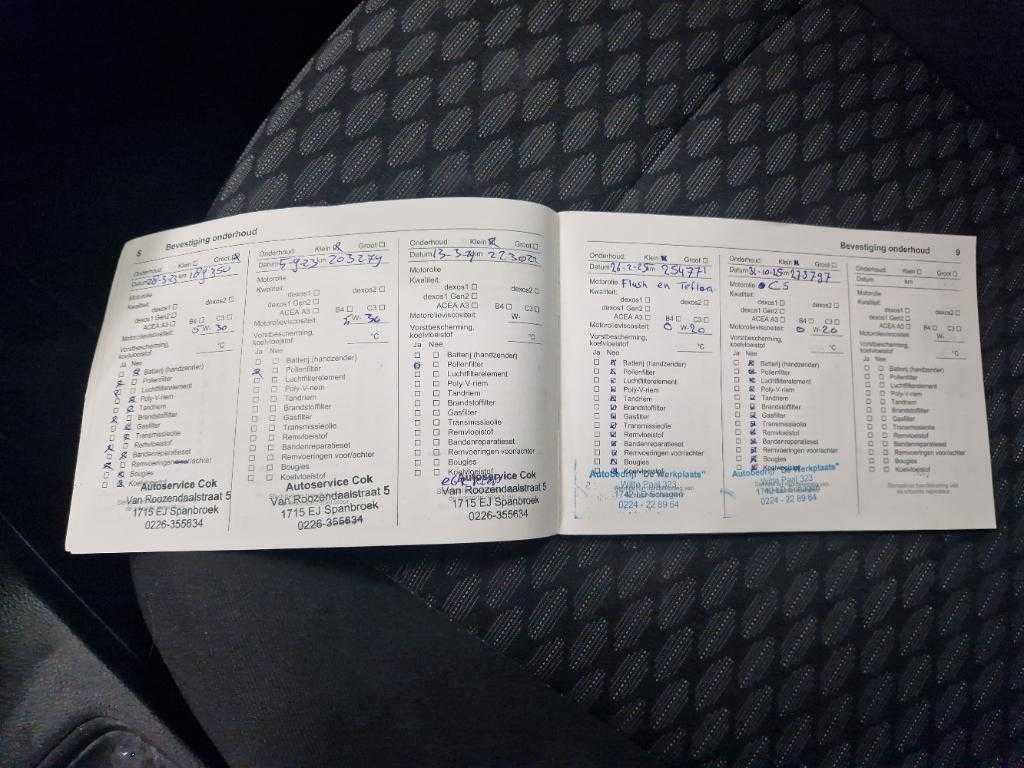 8 Bevestiging onderhoud
Onderhoud: Klein Groot
Datum km 189350
Motorolie
Kwaliteit:
dexos1 dexos2
dexos1 Gen2
ACEA A3 B4 C3
Motorolieviscositeit: 5 W- 30
Vorstbescherming,
koelvloeistof °C
Ja Nee
Batterij (handzender)
Pollenfilter
Luchtfilterelement
Poly-V-riem
Tandriem
Brandstoffilter
Gasfilter
Transmissieolie
Remvloeistof
Bandenreparatieset
Remvoeringen voor/achter
Bougies
Koelvloeistof
Autoservice Cok
Van Roozendaalstraat 5
1715 EJ Spanbroek
0226-355634
Onderhoud: Klein Groot
Datum 5-9-23 km 203279
Motorolie
Kwaliteit:
dexos1 dexos2
dexos1 Gen2
ACEA A3 B4 C3
Motorolieviscositeit: 5 W- 30
Vorstbescherming,
koelvloeistof °C
Ja Nee
Batterij (handzender)
Pollenfilter
Luchtfilterelement
Poly-V-riem
Tandriem
Brandstoffilter
Gasfilter
Transmissieolie
Remvloeistof
Bandenreparatieset
Remvoeringen voor/achter
Bougies
Koelvloeistof
Autoservice Cok
Van Roozendaalstraat 5
1715 EJ Spanbroek
0226-355634
Onderhoud: Klein Groot
Datum 13-3-24 km 223022
Motorolie
Kwaliteit:
dexos1 dexos2
dexos1 Gen2
ACEA A3 B4 C3
Motorolieviscositeit: W-
Vorstbescherming,
koelvloeistof °C
Ja Nee
Batterij (handzender)
Pollenfilter
Luchtfilterelement
Poly-V-riem
Tandriem
Brandstoffilter
Gasfilter
Transmissieolie
Remvloeistof
Bandenreparatieset
Remvoeringen voor/achter
Bougies
Koelvloeistof
Autoservice Cok
Van Roozendaalstraat 5
1715 EJ Spanbroek
0226-355634
Bevestiging onderhoud 9
Onderhoud: Klein Groot
Datum 26-2-25 km 254771
Motorolie Flush en Teflon
Kwaliteit:
dexos1 dexos2
dexos1 Gen2
ACEA A3 B4 C3
Motorolieviscositeit: 0 W-20
Vorstbescherming,
koelvloeistof °C
Ja Nee
Batterij (handzender)
Pollenfilter
Luchtfilterelement
Poly-V-riem
Tandriem
Brandstoffilter
Gasfilter
Transmissieolie
Remvloeistof
Bandenreparatieset
Remvoeringen voor/achter
Bougies
Koelvloeistof
Autobedrijf "De Werkplaats"
Witte Paal 323
1742 LD Schagen
0224 - 22 89 64
Onderhoud: Klein Groot
Datum 31-10-25 km 273797
Motorolie C5
Kwaliteit:
dexos1 dexos2
dexos1 Gen2
ACEA A3 B4 C3
Motorolieviscositeit: 0 W-20
Vorstbescherming,
koelvloeistof °C
Ja Nee
Batterij (handzender)
Pollenfilter
Luchtfilterelement
Poly-V-riem
Tandriem
Brandstoffilter
Gasfilter
Transmissieolie
Remvloeistof
Bandenreparatieset
Remvoeringen voor/achter
Bougies
Koelvloeistof
Autobedrijf "De Werkplaats"
Witte Paal 323
1742 LD Schagen
0224 - 22 89 64
Onderhoud: Klein Groot
Datum km
Motorolie
Kwaliteit:
dexos1 dexos2
dexos1 Gen2
ACEA A3 B4 C3
Motorolieviscositeit: W-
Vorstbescherming,
koelvloeistof °C
Ja Nee
Batterij (handzender)
Pollenfilter
Luchtfilterelement
Poly-V-riem
Tandriem
Brandstoffilter
Gasfilter
Transmissieolie
Remvloeistof
Bandenreparatieset
Remvoeringen voor/achter
Bougies
Koelvloeistof